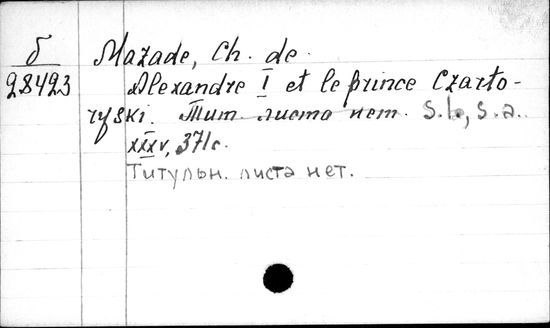 б
28423
Mazade, Ch. de.
Alexandre I et le prince Czarto-
ryski. Тит. листа нет. S.l., s.a.
xxxv, 371с.
Титульн. листа нет.